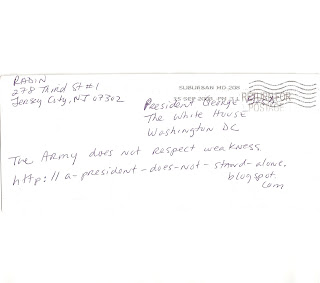 RADIN
278 Third St #1
Jersey City, NJ 07302
SUBURBAN MD 208
15 SEP PM
RETURN FOR
POSTAGE
President George
The White House
Washington DC
The Army does not respect weakness.
http://a-president-does-not-stand-alone.
blogspot.
com